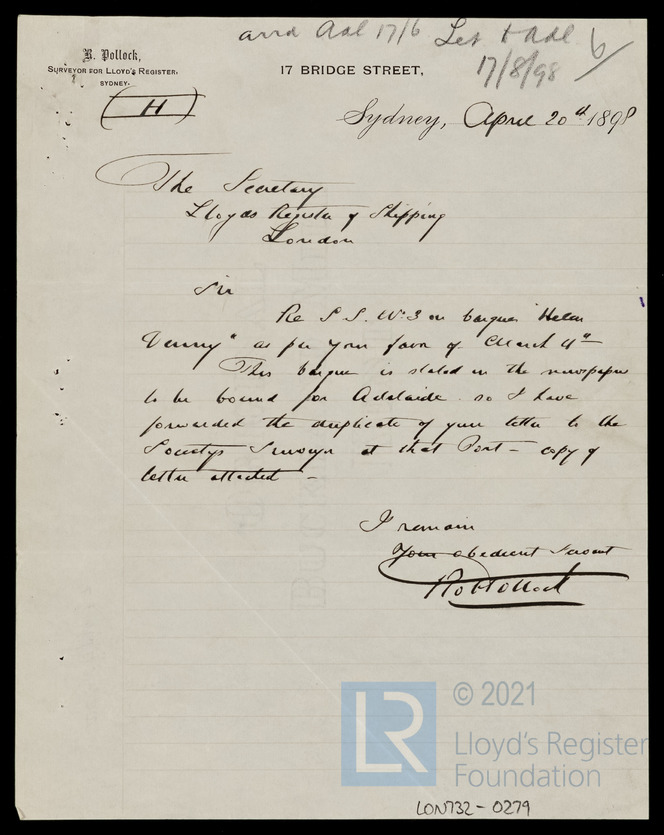 arrd Adl 17/6 Let t Adl
17/8/98
R. Pollock,
SURVEYOR FOR LLOYD'S REGISTER,
SYDNEY.
17 BRIDGE STREET,
H
Sydney, April 20th 1898
The Secretary
Lloyds Register of Shipping
London
Sir
Re S.S. No 3 on barque "Helen
Denny" as per your favor of March 4th
This barque is stated in the newspaper
to be bound for Adelaide so I have
forwarded the duplicate of your letter to the
Societys Surveyor at that Port - copy of
letter attached -
I remain
Your obedient Servant
Rob Pollock
© 2021
LR
Lloyd's Register
Foundation
LON732-0279